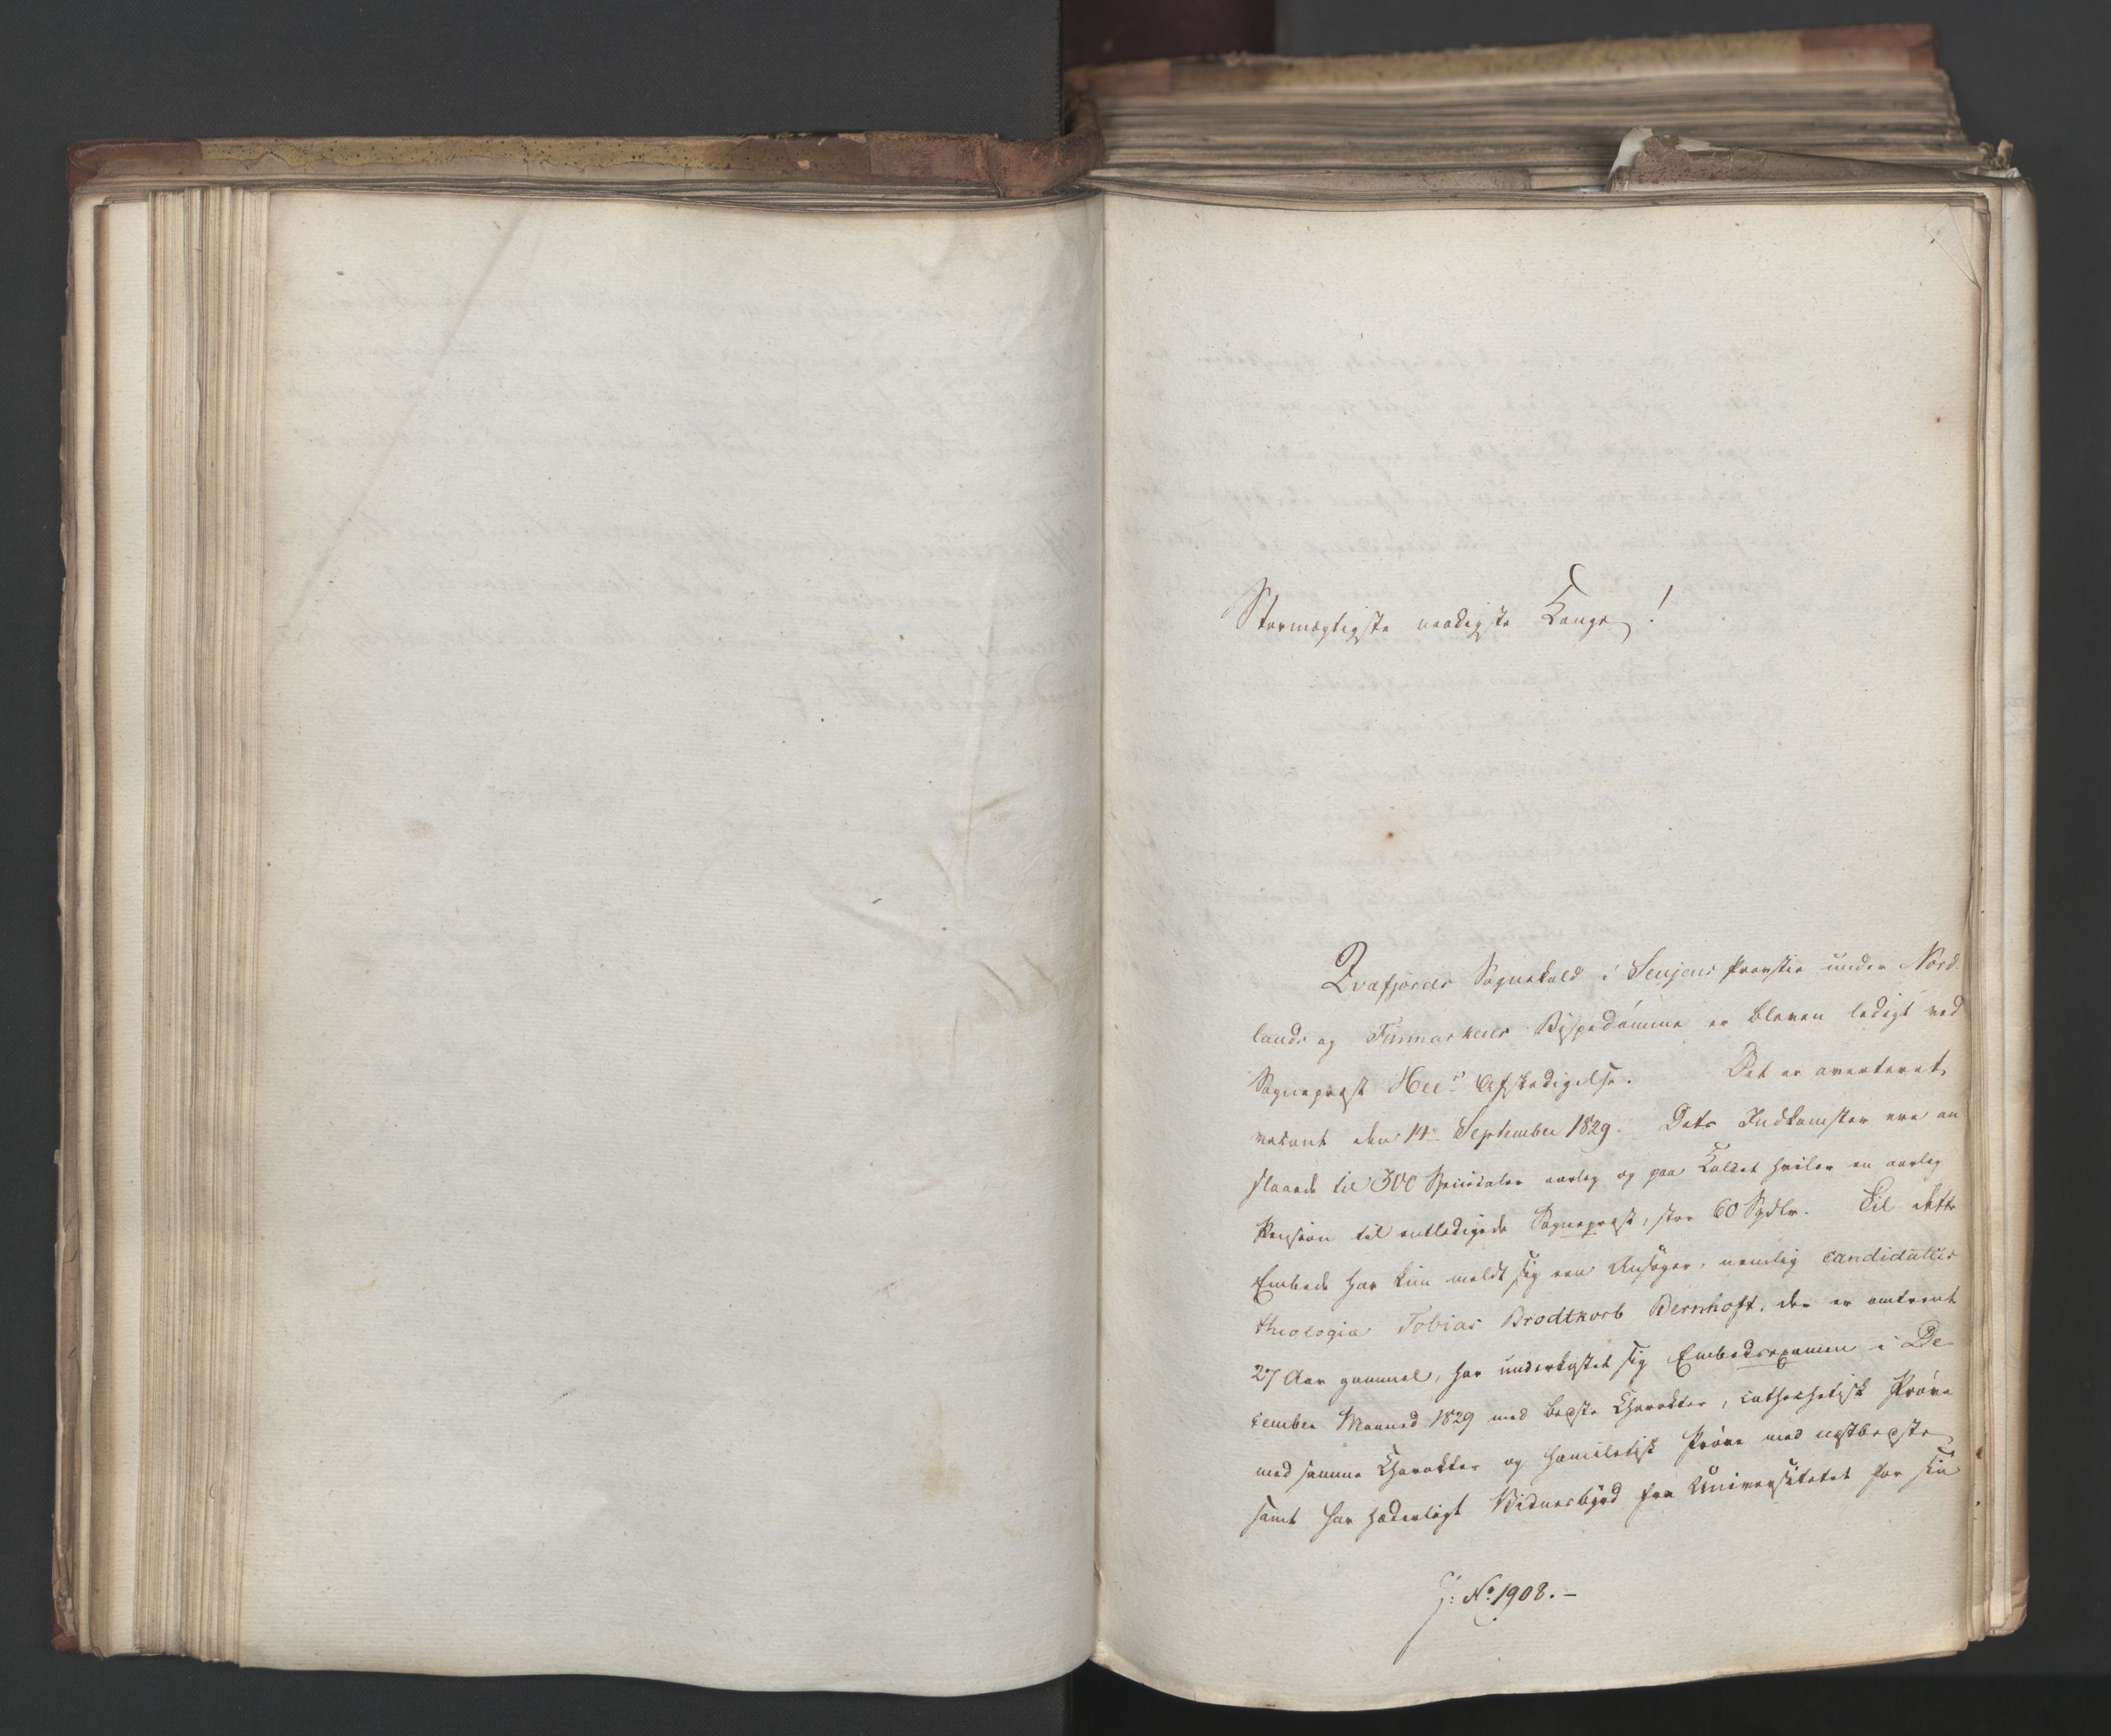 Stormægtigste naadigste Konge!
Qvæfjords Sognekald i Senjens Provstie under Nord
lands og Finmarkens Bispedømme er bleven ledigt ved
Sognepræst Afskedigelse. Det er averteret
vakant den 14de September 1829. Dets Indkomster ere an
slaaede til 300 Speciedaler aarlig og paa Kaldet hviler en aarlig
Pension til entledigede Sognepræst, stor 60 Spdlr. Til dette
Embede har kun meldt sig een Ansøger, nemlig Candidatus
theologiæ Tobias Brodtkorb Bernhoft, der er omtrent
27 Aar gammel, har underkastet sig Embedsexamen i De
cember Maaned 1829 med bedste Charakter, cathechetisk Prøve
med samme Charakter og homiletisk Prøve med næstbedste
samt har hæderligt Vidnesbyrd fra Universitetet for sin
J: No. 1908. –